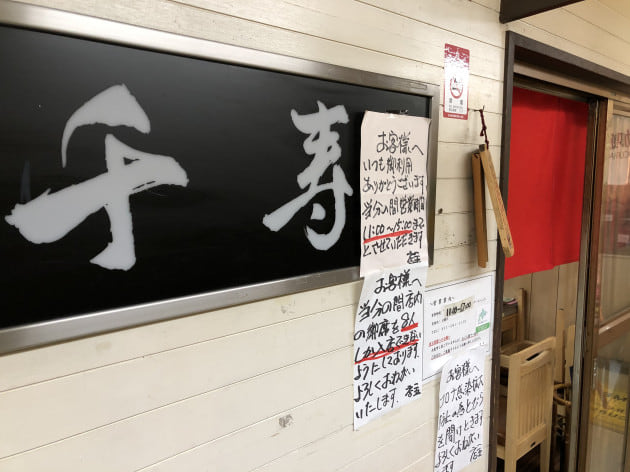 千寿
お客様へ
いつも御利用
ありがとうございます
当分の間営業時間
11:00〜15:00まで
とさせていただきます
店主
お客様へ
当分の間店内
の御席を8人
しか入店できない
ようにしております。
よろしくおねがい
いたします. 店主
〜営業案内〜
11:00〜17:00
お客様へ
コロナ感染拡大
防止の為とびら
を開けときます
よろしくおねがい
します 店主